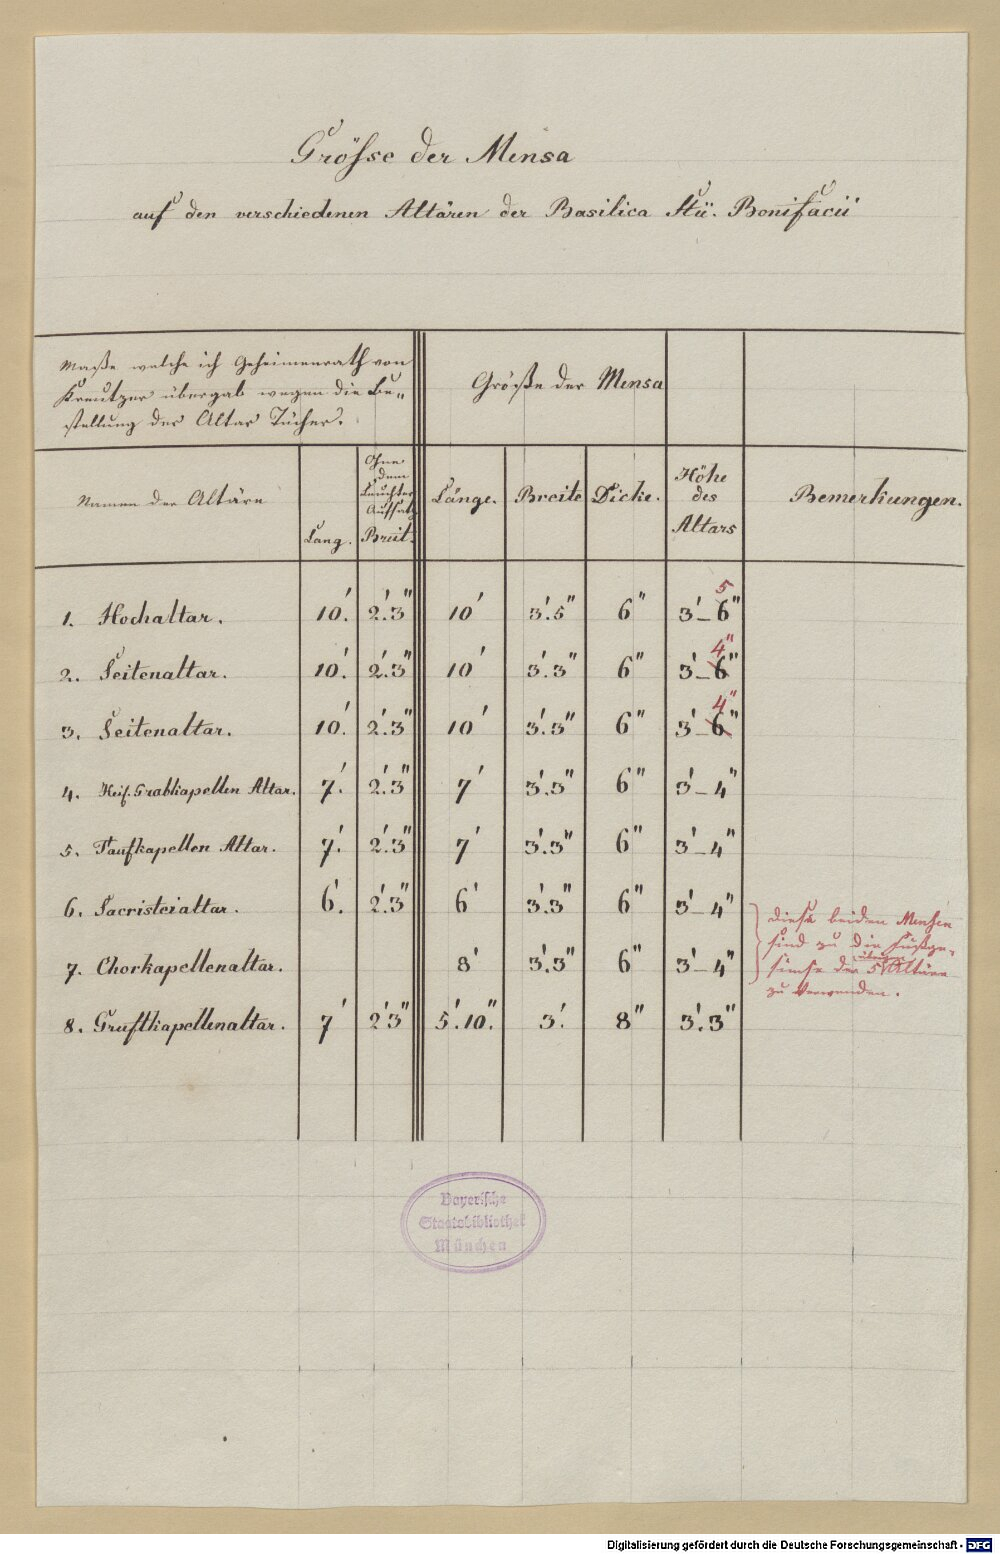 Grösse der Mensa
auf den verschiedenen Altären der Basilica Sti. Bonifacii
Maße welche ich Geheimenrath von
Kreutzer übergab wegen die Be„
stellung der Altar Tücher.
Größe der Mensa
Namen der Altäre
Lang.
Ohne
dem
Leuchter
Aufsatz
Breit.
Länge.
Breite
Dicke.
Höhe
des
Altars
Bemerkungen.
1. Hochaltar. 10.' 2.'3" 10' 3.'5" 6" 3'–6" 5
2. Seitenaltar. 10.' 2.'3" 10' 3.'3" 6" 3'–6" 4"
3. Seitenaltar. 10.' 2.'3" 10' 3.'3" 6" 3'–6" 4"
4. Heil. Grabkapellen Altar. 7.' 2.'3" 7' 3.'3" 6" 3'–4"
5. Taufkapellen Altar. 7.' 2.'3" 7' 3.'3" 6" 3'–4"
6. Sacristeialtar. 6.' 2.'3" 6' 3.'3" 6" 3'–4"
7. Chorkapellenaltar. 8' 3.'3" 6" 3'–4"
8. Gruftkapellenaltar. 7' 2'3" 5'.10." 3.' 8" 3.'3"
diese beiden Mensen
sind zu die Fußge„
simse der übrigen 5 Altäre
zu verwenden.
Bayerische
Staatsbibliothek
München
Digitalisierung gefördert durch die Deutsche Forschungsgemeinschaft - DFG